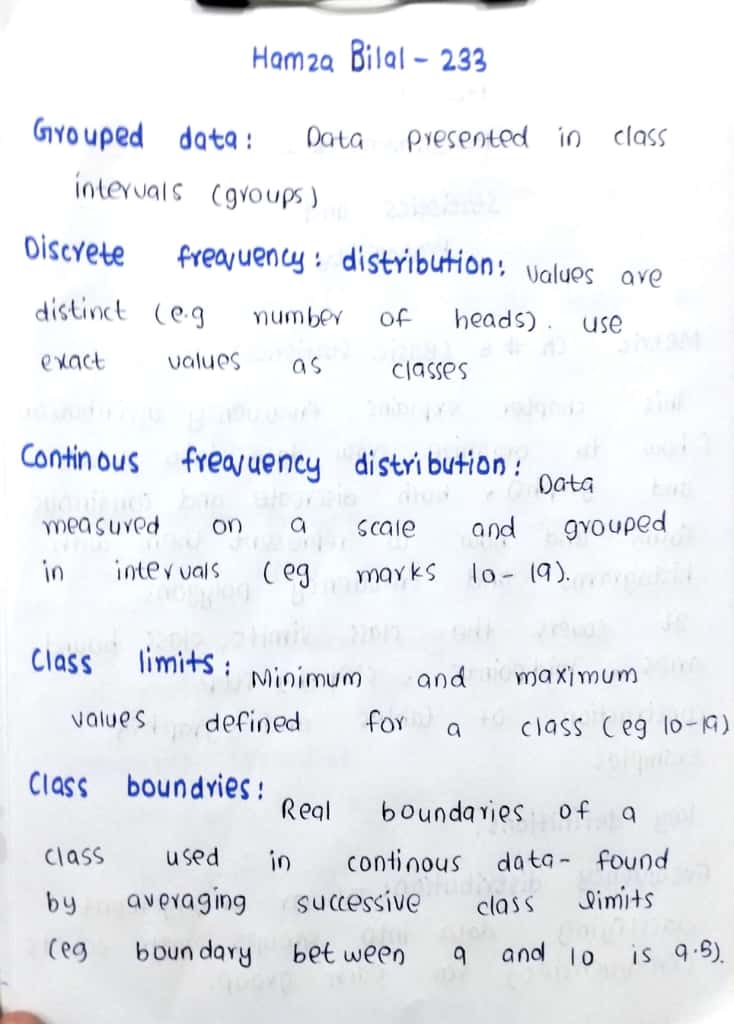 Hamza Bilal - 233
Grouped data: Data presented in class
intervals (groups)
Discrete frequency: distribution: Values are
distinct (e.g number of heads). use
exact values as classes
Continous frequency distribution: Data
measured on a scale and grouped
in intervals (eg marks 10-19).
Class limits: Minimum and maximum
values defined for a class (eg 10-19)
Class boundries: Real boundaries of a
class used in continous data- found
by averaging successive class limits
(eg boundary between 9 and 10 is 9.5).